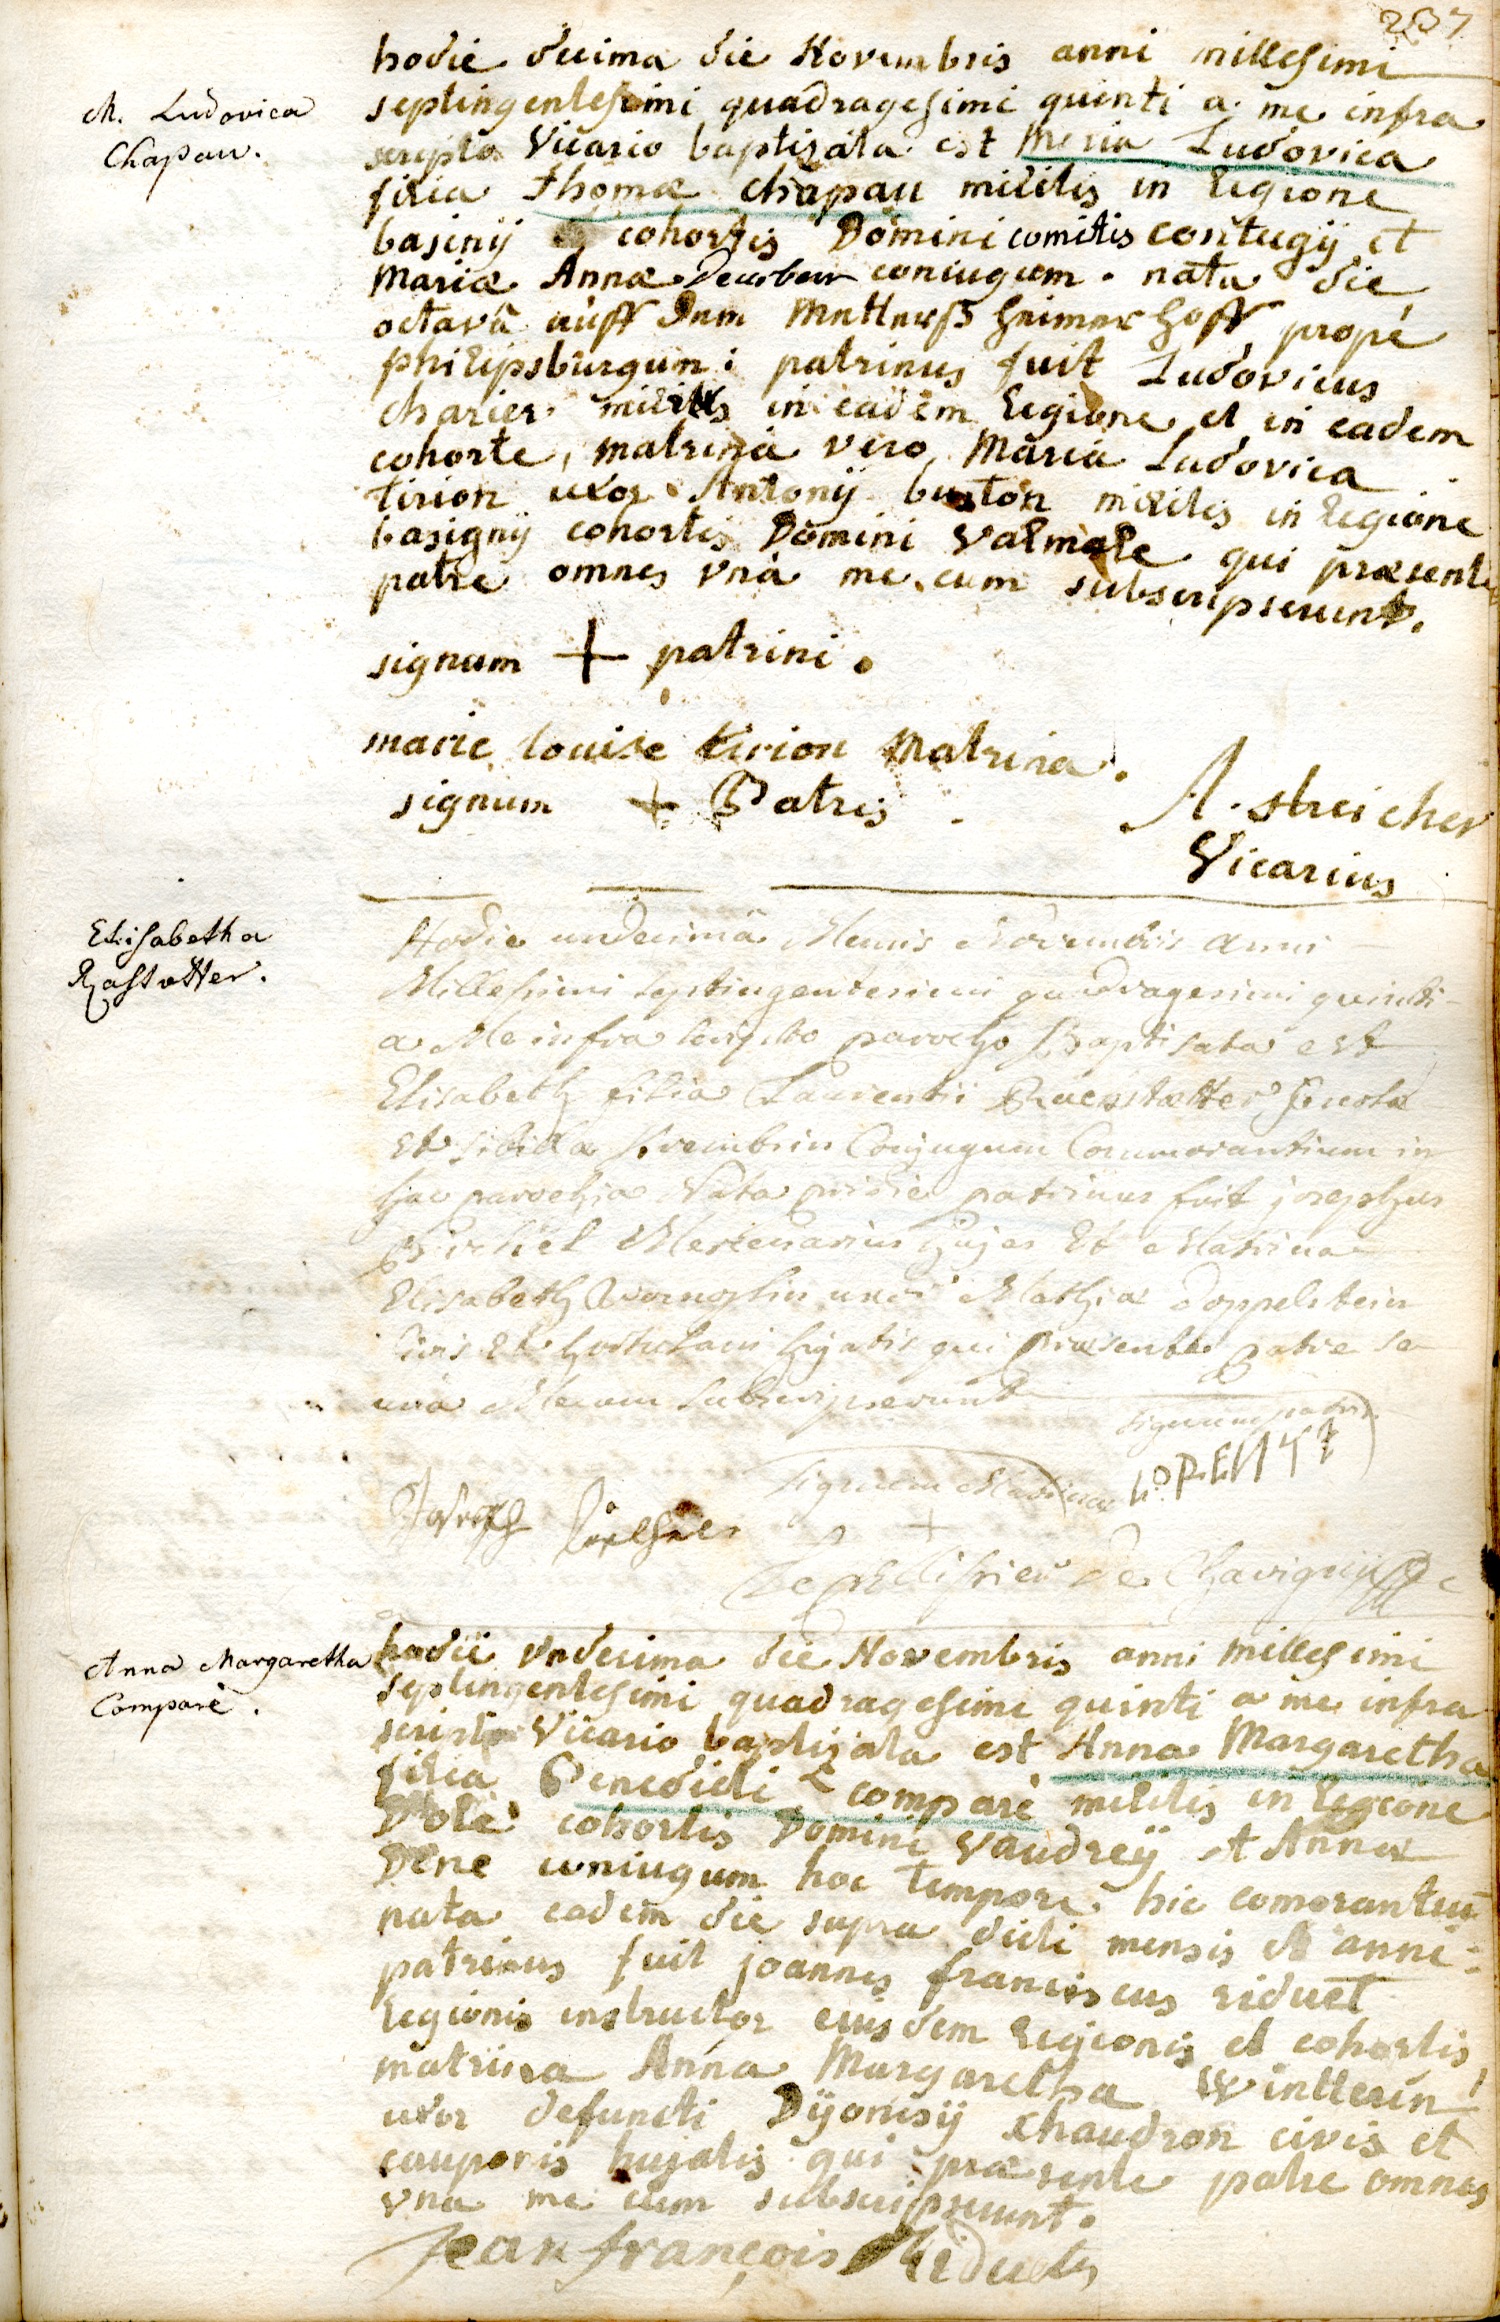 207
hodie decima die Novembris anni millesimi
M. Ludovica
Chapau.
septingentesimi quadragesimi quinti a me infra
scripto Vicario baptizata est Maria Ludovica
filia Thomæ chapau militis in legione
basinij cohortis Domini comitis contugij et
Mariæ Annæ coniugum. nata die
octavâ auff dem hoff propé
philipsburgum: patrinus fuit Ludovicus
charier militis in eadem legione et in eadem
cohorte, matrina vero Maria Ludovica
tirion uxor Antonij buston militis in legione
basignij cohortis Domini Valmale qui præsente
patre omnes vnà me cum subscripserunt.
signum + patrini.
marie louise tirion Matrina.
signum + Patris.
A. streicher
Vicarius
Elisabetha
Rastatter.
Hodie undecimâ Mensis Novembris anni
Millesimi septingentesimi quadragesimi quinti
a Me infra scripto parocho Baptisata est
Elisabeth filia Laurentii
Et sibillæ Conjugum Commorantium in
hac parochia Nata pridie patrinus fuit josephus
Mercenarius hujas Et Matrina
Elisabeth uxor Mathiæ Doppelstein
Civis Et hortulani hujatis qui præsente patre se
unà Mecum subscripserunt
signum patris
signum Matrinæ
+
Joseph
De Chavignij
Anna Margaretha
Comparè.
hodie vndecima die Novembris anni millesimi
septingentesimi quadragesimi quinti a me infra
scripto Vicario baptizata est Anna Margaretha
filia Benedicti comparè militis in legione
Dolè cohortis Domini Vaudreÿ et Annæ
Dene coniugum hoc tempore hic comorantium
nata eadem die supra dicti mensis et anni:
patrinus fuit joannes franciscus riduet
legionis instructor eiusdem legionis et cohortis
matrina Anna Margaretha Wintterin
uxor defuncti Dijonisij chaudron civis et
cauponis hujatis qui præsente patre omnes
vna me cum subscripserunt.
Jean françois Riduet